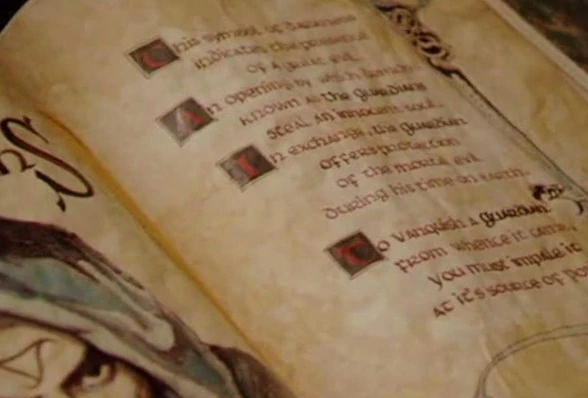 This symbol of darkness
indicates the presence
of a pure evil.
An opening by which demons
known as the guardians
steal an innocent soul.
In exchange, the guardian
offers protection
of the mortal evil
during his time on earth.
To vanquish a guardian
from whence it came,
you must impale it
at it's source of